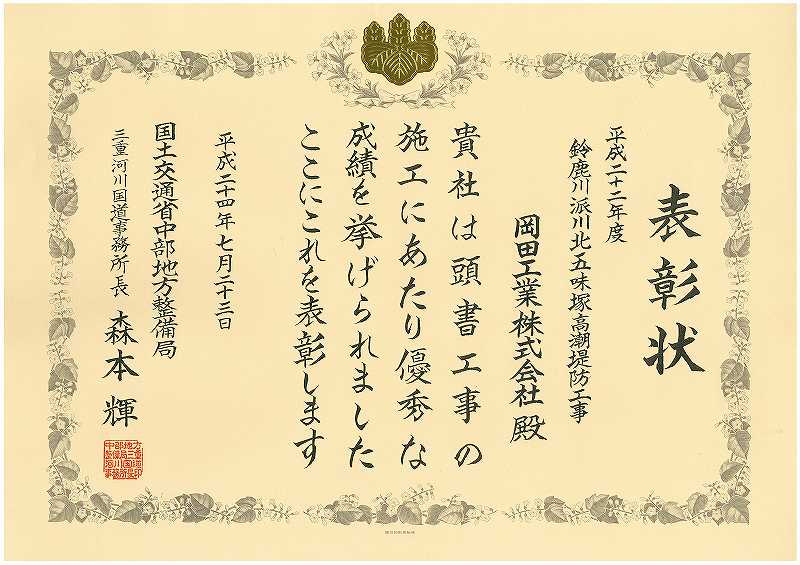 表彰状
平成二十二年度
鈴鹿川派川北五味塚高潮堤防工事
岡田工業株式会社殿
貴社は頭書工事の
施工にあたり優秀な
成績を挙げられました
ここにこれを表彰します
平成二十四年七月二十三日
国土交通省中部地方整備局
三重河川国道事務所長 森本輝